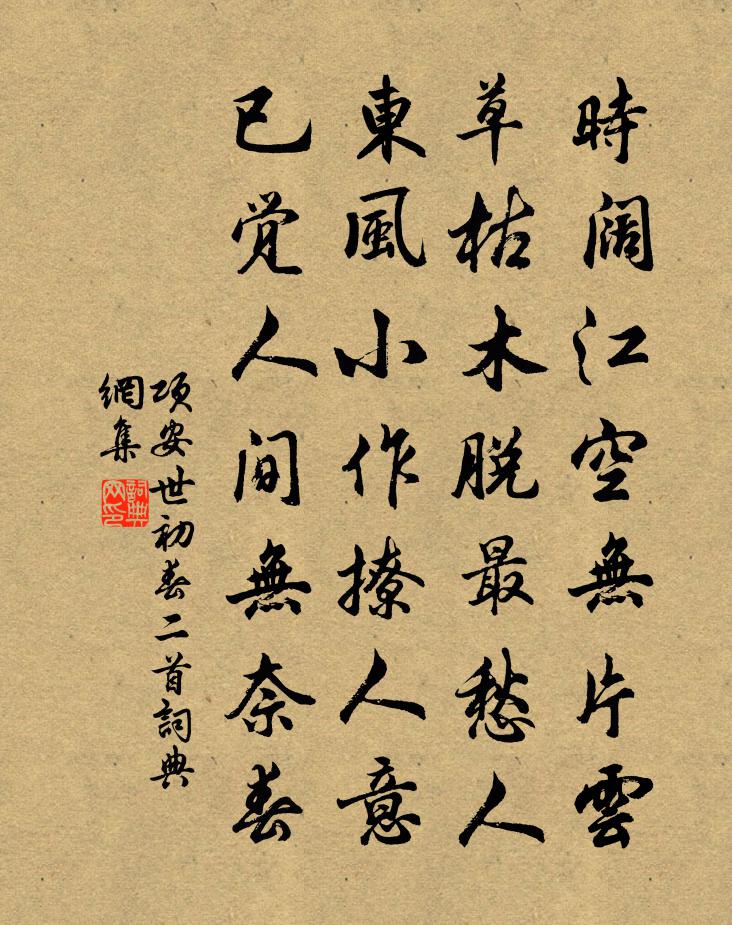 時闊江空無片雲
草枯木脱最愁人
東風小作撩人意
已覚人间無奈春
项安世初春二首詞典
網集
詞典
网印